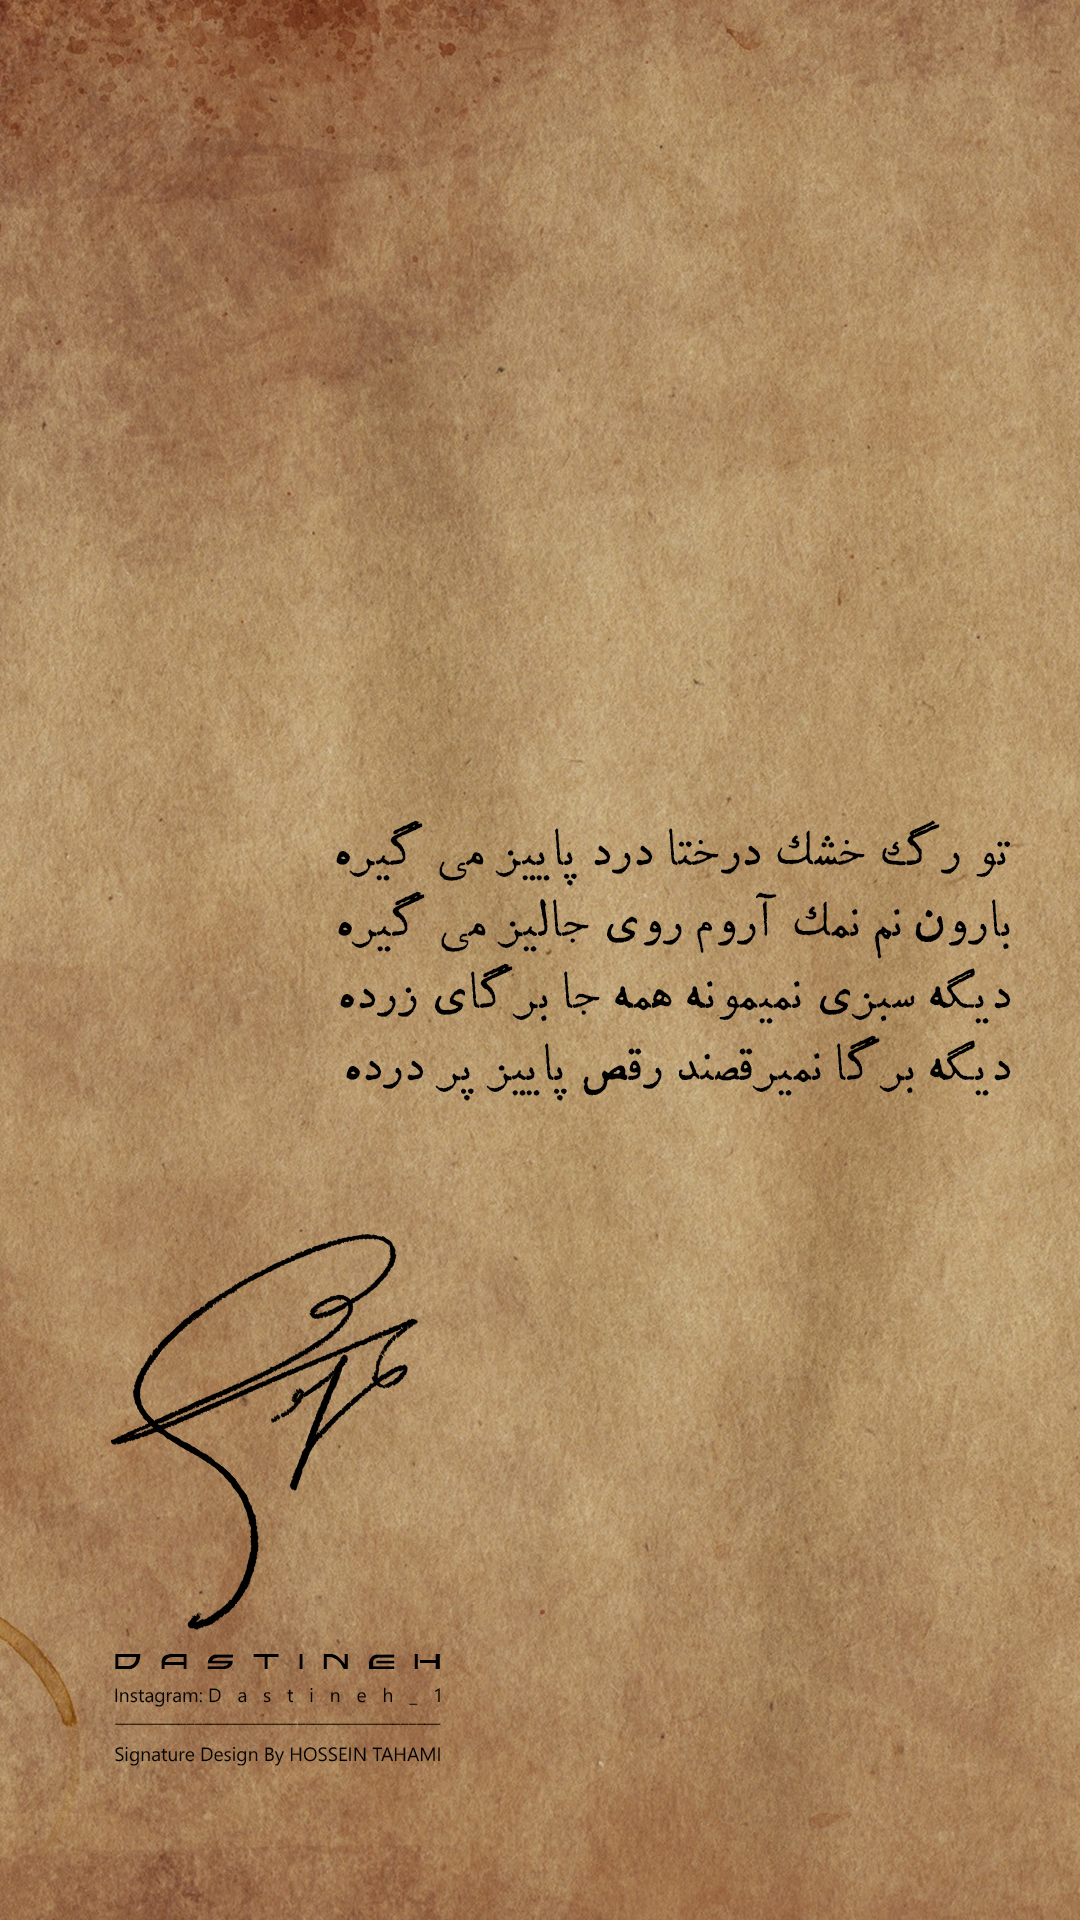 تو رگ خشك درختا درد پاييز مى گيره
بارون نم نمك آروم روى جاليز مى گيره
ديگه سبزى نميمونه همه جا برگاى زرده
ديگه برگا نميرقصند رقص پاييز پر درده
DASTINEH
Instagram: Dastineh_1
Signature Design By HOSSEIN TAHAMI